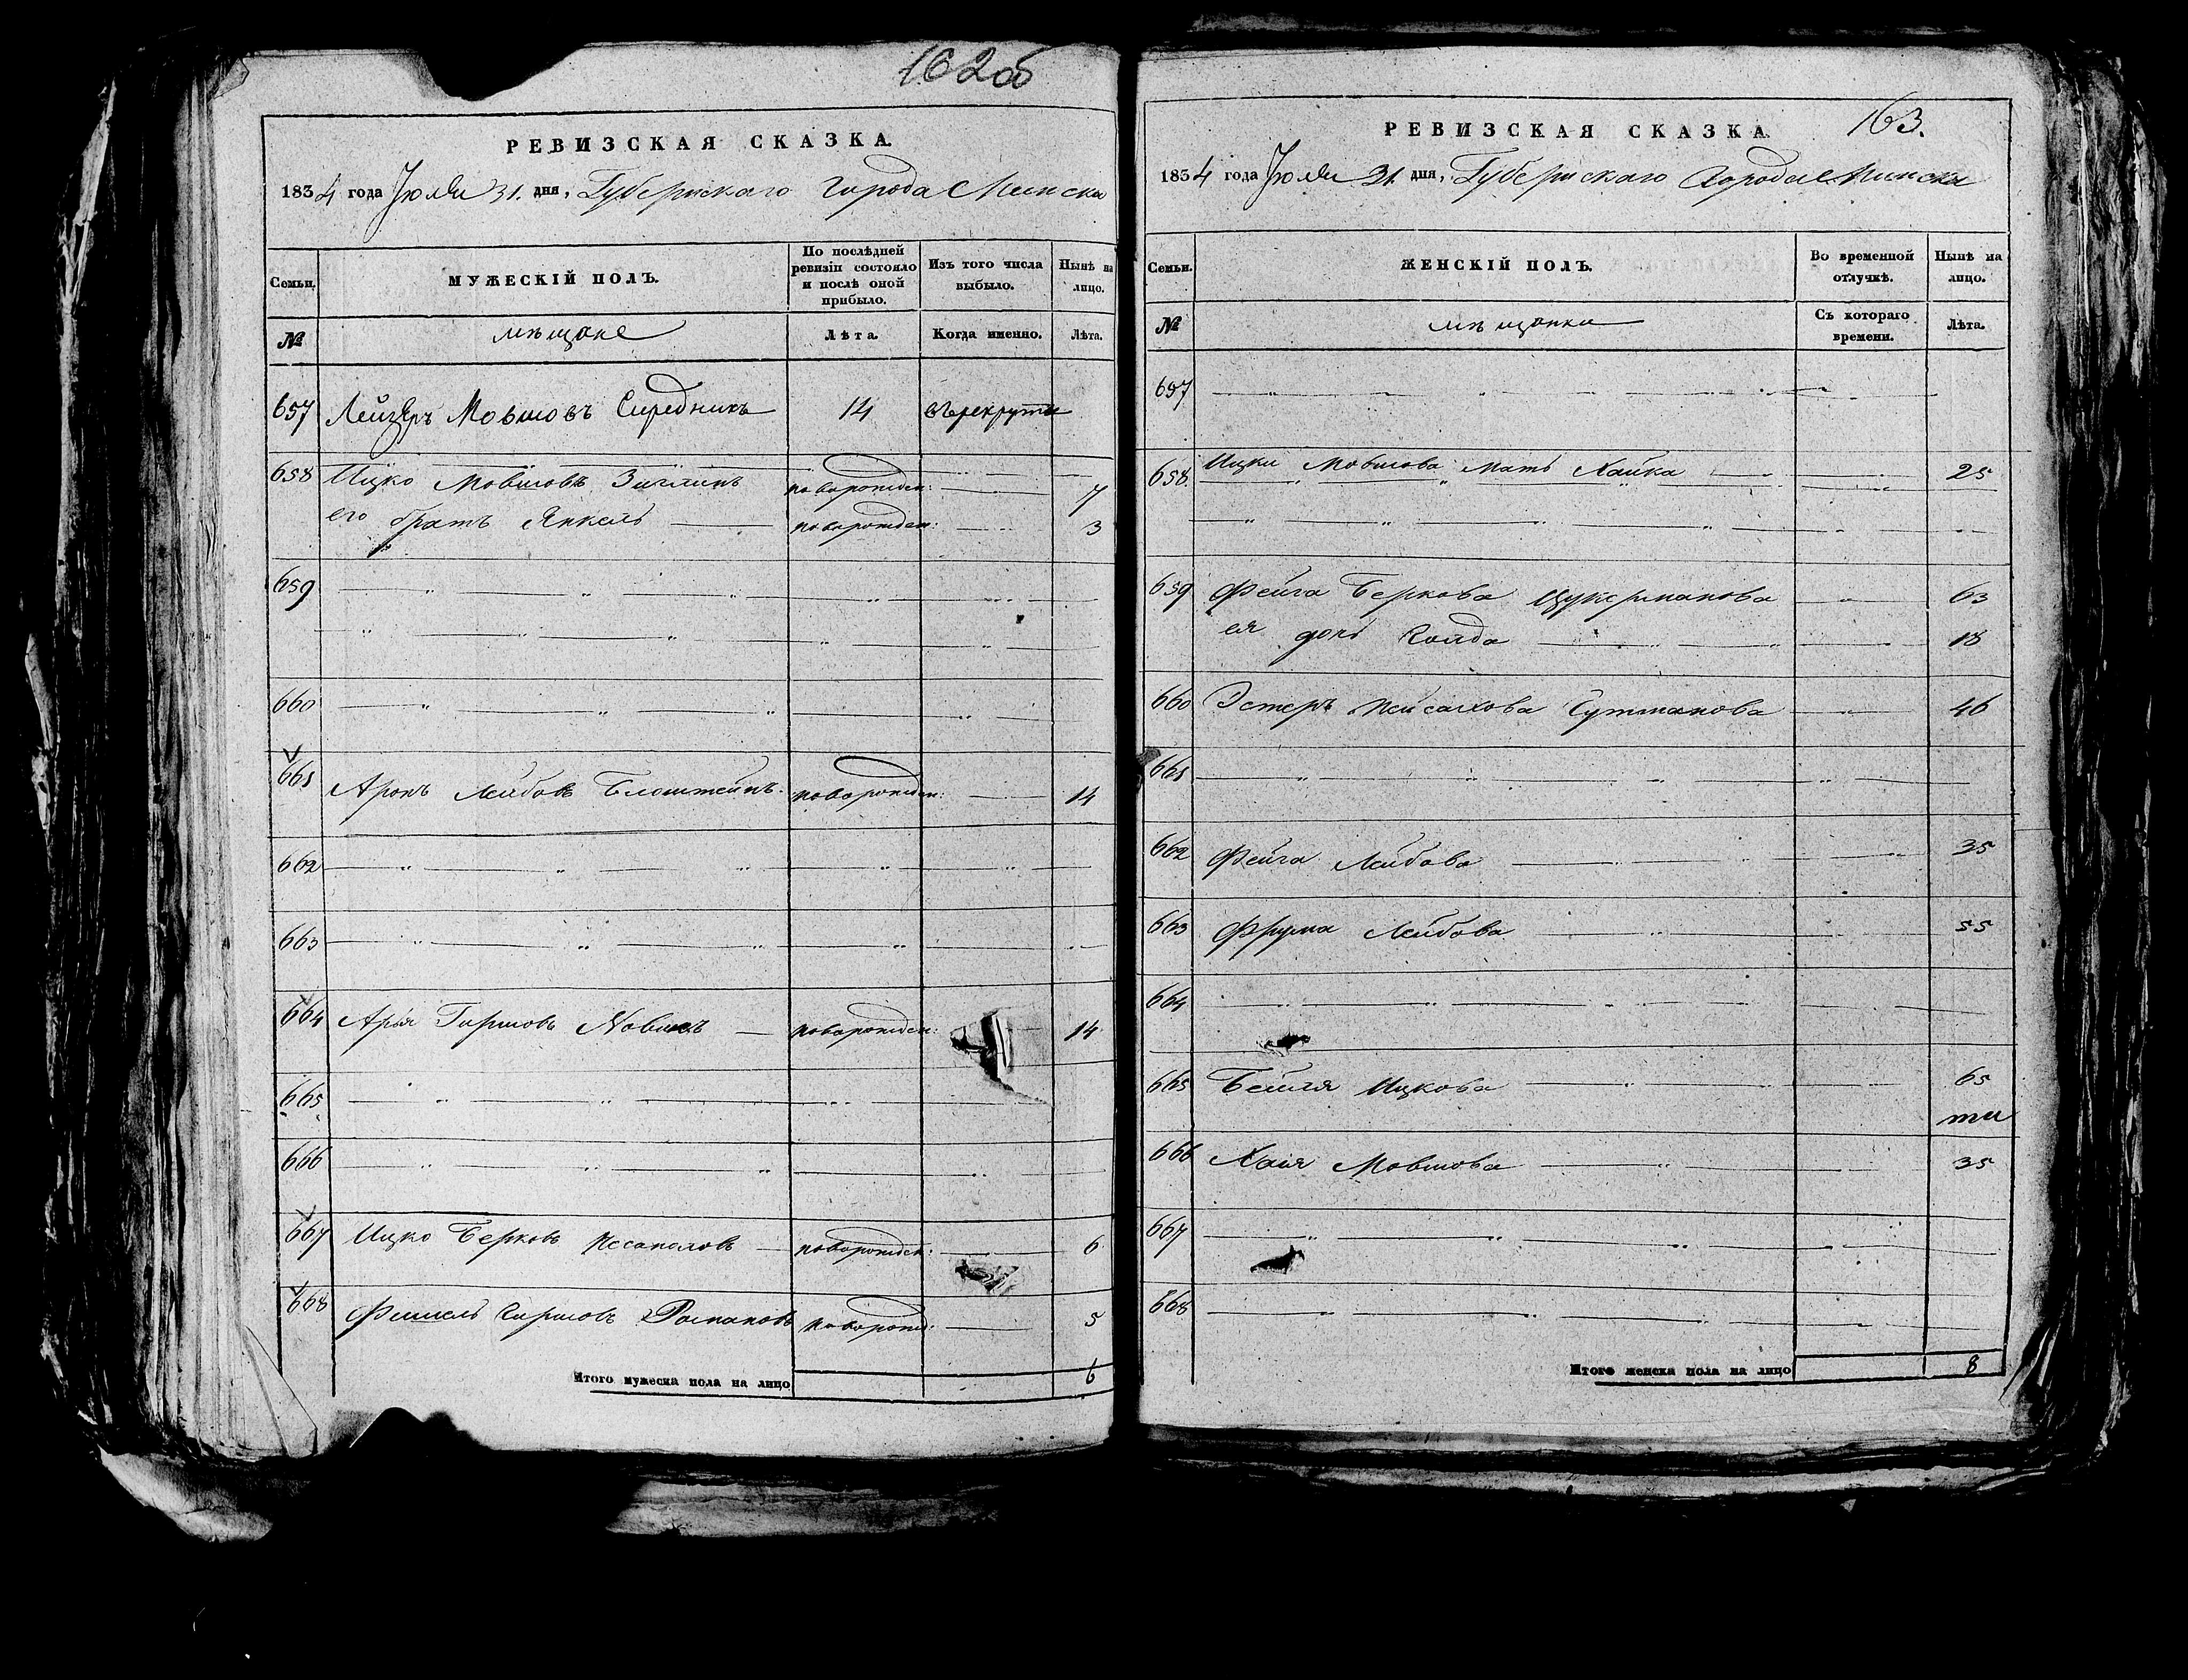 162об
РЕВИЗСКАЯ СКАЗКА.
1834 года Июля 31. дня, Губернскаго Города Минска
Семьи. МУЖЕСКІЙ ПОЛЪ. По послѣдней ревизіи состояло и послѣ оной прибыло. Изъ того числа выбыло. Нынѣ на лицо.
№ мѣщане Лѣта. Когда именно. Лѣта.
657 Лейзеръ Мовшовъ Середникъ 14 въ рекруты
658 Ицко Мовшовъ Зиглинъ новорожден: 7
его братъ Янкель новорожден: 3
659
660
661 Аронъ Лейбовъ Блоштейнъ новорожден: 14
662
663
664 Арья Гиршовъ новорожден: 14
665
666
667 Ицко Берковъ новорожден: 6
668 Фишель Гиршовъ новорожд: 5
Итого мужеска пола на лицо 6
163.
РЕВИЗСКАЯ СКАЗКА
1834 года Июля 31. дня, Губернскаго Города Минска
Семьи. ЖЕНСКІЙ ПОЛЪ. Во временной отлучкѣ. Нынѣ на лицо.
№ мѣщанки Съ котораго времени. Лѣта.
657
658 Ицки Мовшова мать Хайка 25
659 Фейга Беркова Цукерманова 63
ея дочь 18
660 Эстеръ Пейсахова Гутманова 46
661
662 Фейга Лейбова 35
663 Фрума Лейбова 55
664
665 Бейля Ицкова 65
ти
666 Хая Мовшова 35
667
668
Итого женска пола на лицо 8